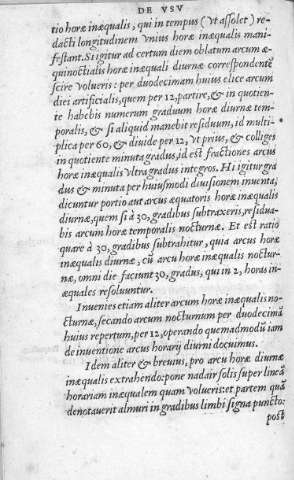 DE VSV
tio horæ inæqualis, qui in tempus (vt assolet) re-
dacti longitudinem vnius horæ inæqualis mani-
festant. Si igitur ad certum diem oblatum arcum æ-
quinoctialis horæ inæquali diurnæ correspondentẽ
scire volueris: per duodecimam huius elice arcum
diei artificialis, quem per 12, partire, & in quotien-
te habebis numerum graduum horæ diurnæ tem-
poralis, & si aliquid manebit residuum, id multi-
plica per 60, & diuide per 12, vt prius, & colliges
in quotiente minuta gradus, id est fractiones arcus
horæ inæqualis vltra gradus integros. Hi igitur gra
dus & minuta per huiusmodi diuisionem inuenta,
dicuntur portio aut arcus æquatoris horæ inæqualis
diurnæ, quem si à 30, gradibus subtraxeris, residua-
bis arcum horæ temporalis nocturnæ. Et est ratio
quare à 30, gradibus subtrahitur, quia arcus horæ
inæqualis diurnæ, cũ arcu horæ inæqualis noctur-
næ, omni die faciunt 30, gradus, qui in 2, horas in-
æquales resoluuntur.
Inuenies etiam aliter arcum horæ inæqualis no-
cturnæ, secando arcum nocturnum per duodecimã
huius repertum, per 12, operando quemadmodũ iam
de inuentione arcus horarij diurni docuimus.
Idem aliter & breuius, pro arcu horæ diurnæ
inæqualis extrahendo: pone nadair solis super lineã
horariam inæqualem quam volueris: et partem quã
denotauerit almuri in gradibus limbi signa puncto:
post